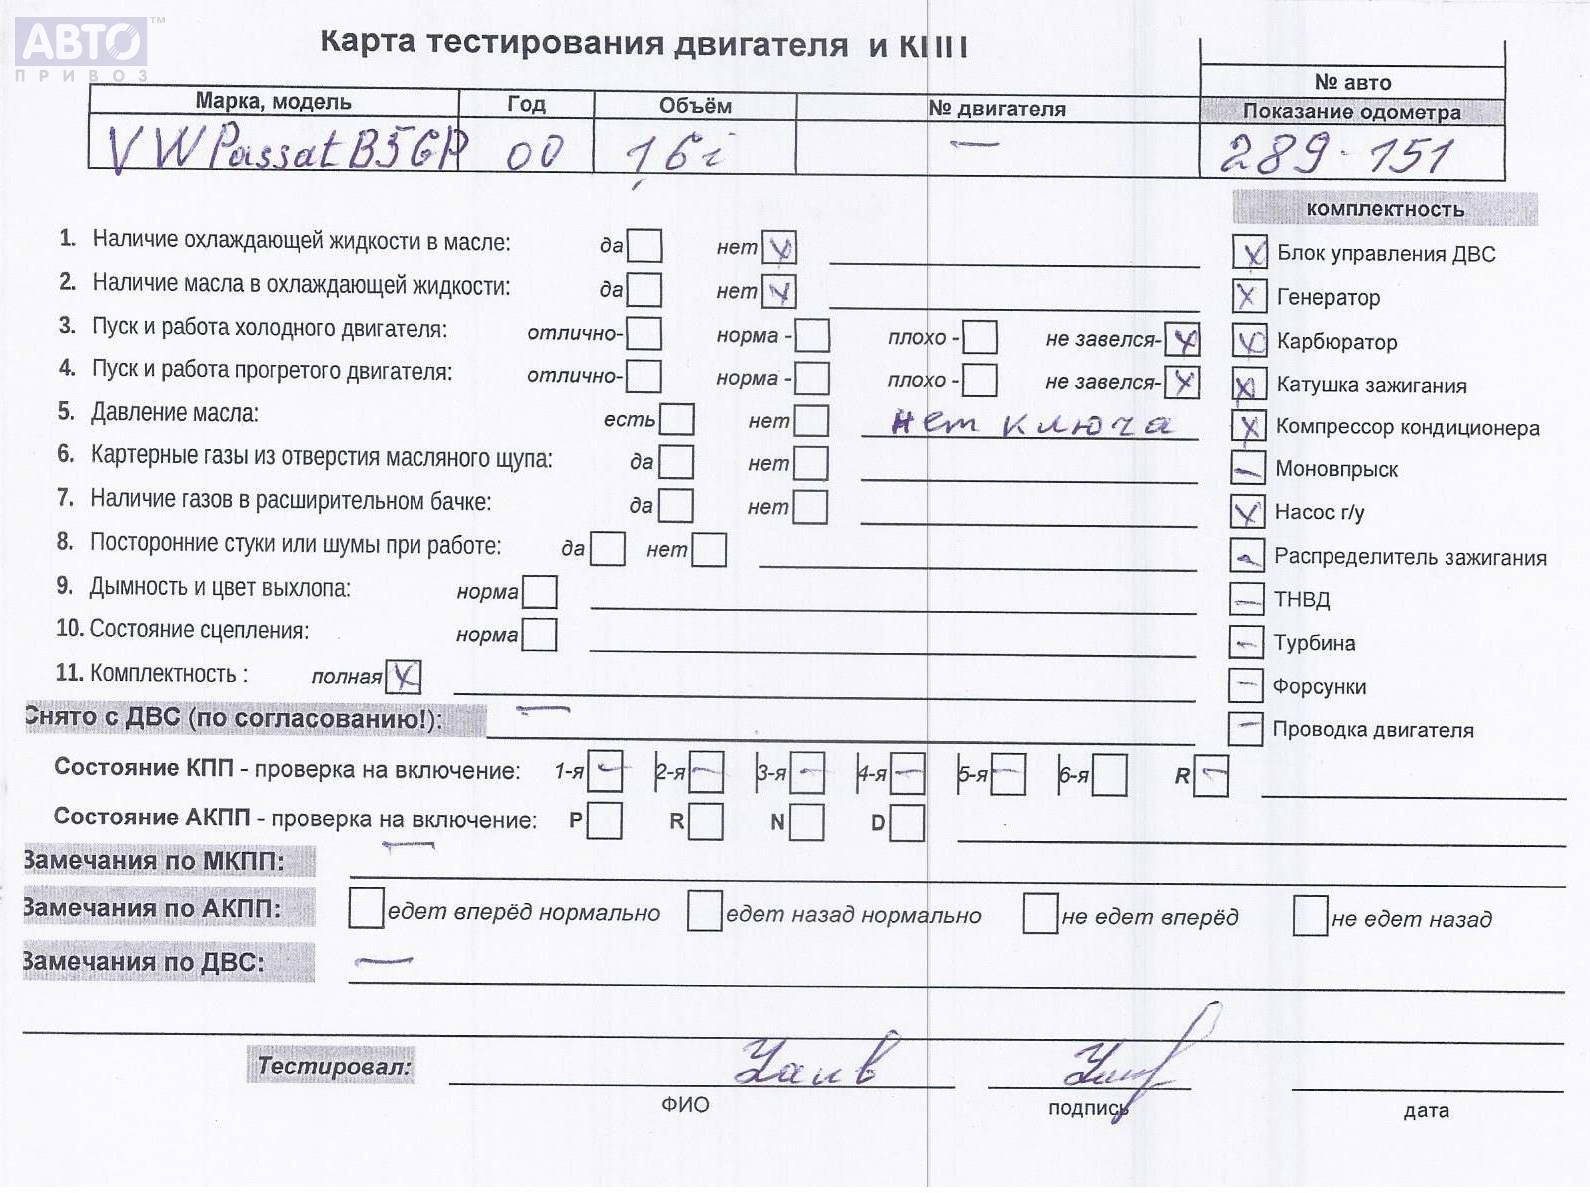 АВТО™
ПРИВОЗ
Карта тестирования двигателя и КПП
№ авто
Марка, модель Год Объём № двигателя Показание одометра
VW Passat B5GP 00 1,6i — 289·151
комплектность
1. Наличие охлаждающей жидкости в масле: да нет X
Блок управления ДВС X
2. Наличие масла в охлаждающей жидкости: да нет X
Генератор X
3. Пуск и работа холодного двигателя: отлично- норма - плохо - не завелся- X
Карбюратор X
4. Пуск и работа прогретого двигателя: отлично- норма - плохо - не завелся- X
Катушка зажигания X
5. Давление масла: есть нет нет ключа
Компрессор кондиционера X
6. Картерные газы из отверстия масляного щупа: да нет
Моновпрыск —
7. Наличие газов в расширительном бачке: да нет
Насос г/у X
8. Посторонние стуки или шумы при работе: да нет
Распределитель зажигания —
9. Дымность и цвет выхлопа: норма
ТНВД —
10. Состояние сцепления: норма
Турбина —
11. Комплектность : полная X
Форсунки —
Снято с ДВС (по согласованию!): —
Проводка двигателя —
Состояние КПП - проверка на включение: 1-я — 2-я — 3-я — 4-я — 5-я — 6-я R —
Состояние АКПП - проверка на включение: P R N D
Замечания по МКПП: —
Замечания по АКПП: едет вперёд нормально едет назад нормально не едет вперёд не едет назад
Замечания по ДВС: —
Тестировал:
ФИО подпись дата